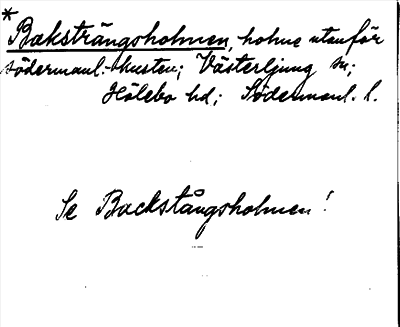 *
Baksträngsholmen, holme utanför
södermanl.-kusten; Västerljung sn;
Hölebo hd; Södermanl. l.
Se Backstångsholmen!